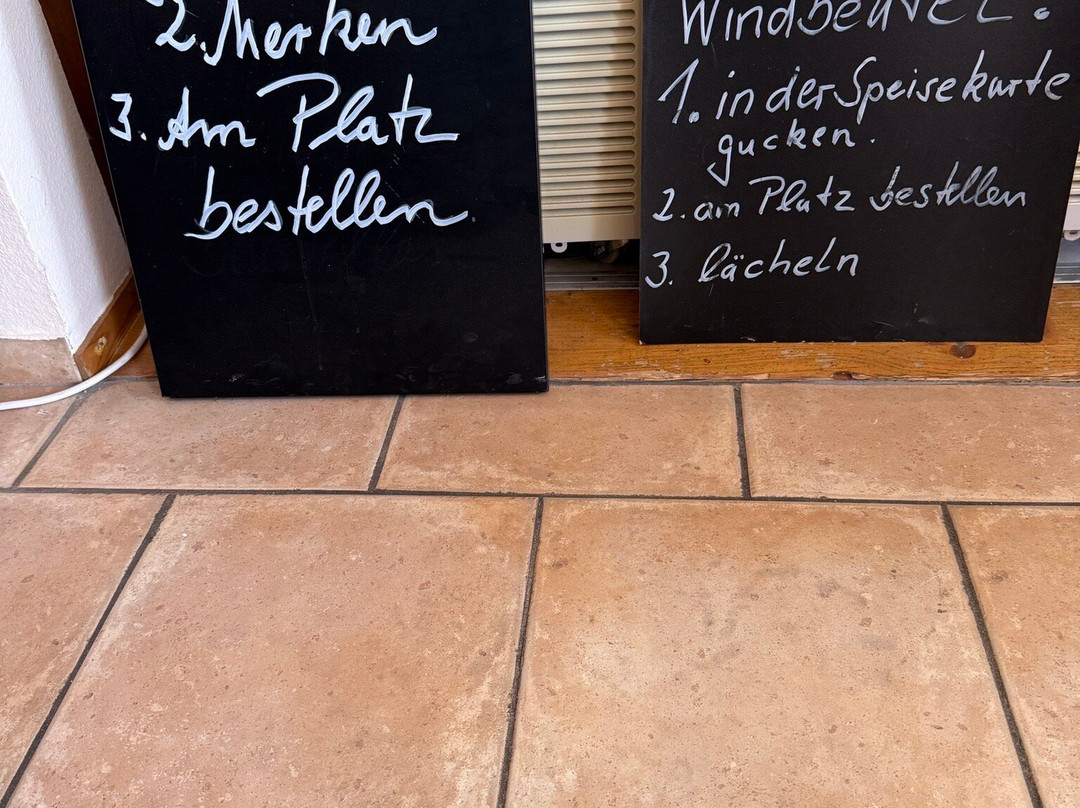 2. Merken
3. Am Platz
bestellen.
Windbeutel:
1. in der Speisekarte
gucken.
2. am Platz bestellen
3. lächeln